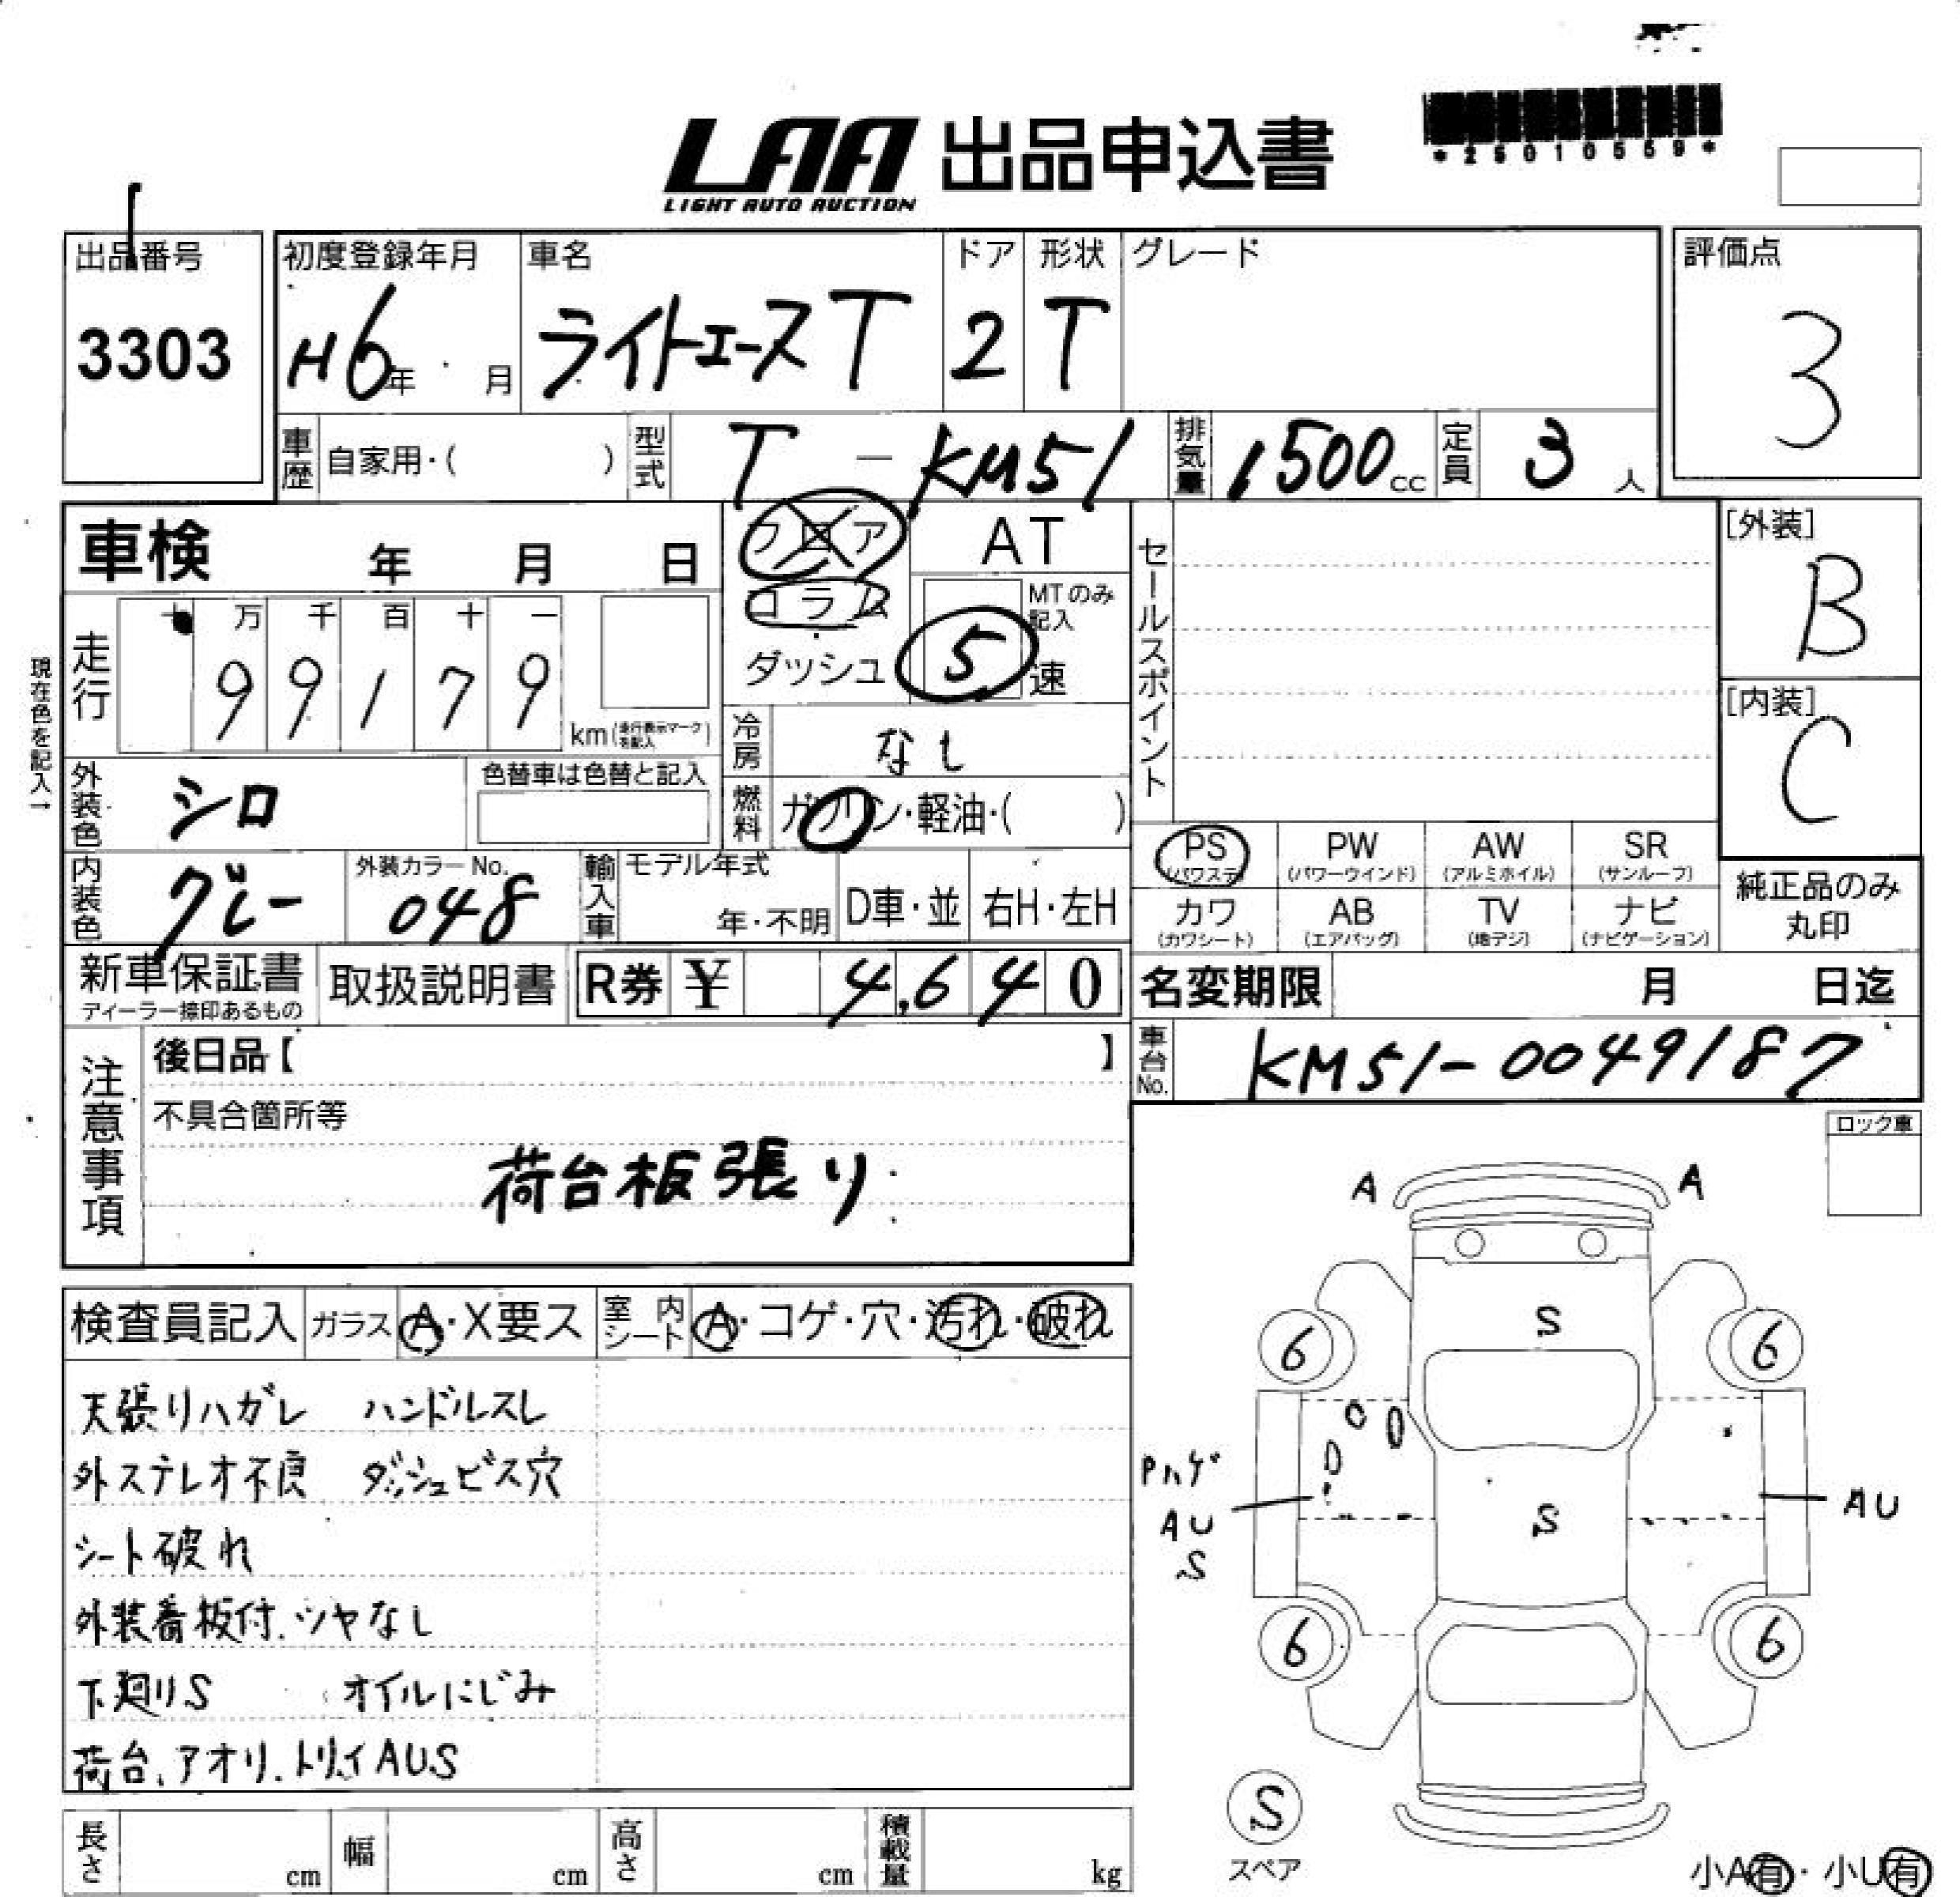 LAA 出品申込書
LIGHT AUTO AUCTION
*25010559*
出品番号
3303
初度登録年月
H6年 月
車名
ライトエースT
ドア
2
形状
T
グレード
評価点
3
車歴 自家用・( )
型式 T - KM51
排気量 1500cc
定員 3人
車検 年 月 日
フロア
コラム
ダッシュ
AT
MTのみ記入
5速
セールスポイント
[外装]
B
[内装]
C
現在色を記入→
走行
十 万 千 百 十 一
9 9 1 7 9
km(走行表示マークを記入)
冷房 なし
燃料 ガソリン・軽油・( )
外装色 シロ
色替車は色替と記入
内装色 グレー
外装カラーNo.
048
輸入車 モデル年式
年・不明
D車・並
右H・左H
PS (パワステ)
PW (パワーウインド)
AW (アルミホイル)
SR (サンルーフ)
カワ (カワシート)
AB (エアバッグ)
TV (地デジ)
ナビ (ナビゲーション)
純正品のみ
丸印
新車保証書
ディーラー捺印あるもの
取扱説明書
R券 ¥ 4,640
名変期限 月 日迄
車台No. KM51-0049187
注意事項
後日品【 】
不具合箇所等
荷台板張り
ロック車
検査員記入
ガラス A・X要ス
室内シート A・コゲ・穴・汚れ・破れ
天張りハガレ ハンドルスレ
外ステレオ不良 ダッシュビス穴
シート破れ
外装看板付.ツヤなし
下廻りS オイルにじみ
荷台、アオリ.トリイAUS
A
A
S
6
6
Pハゲ
AU
S
S
AU
6
6
S
スペア
小A有・小U有
長さ cm
幅 cm
高さ cm
積載量 kg